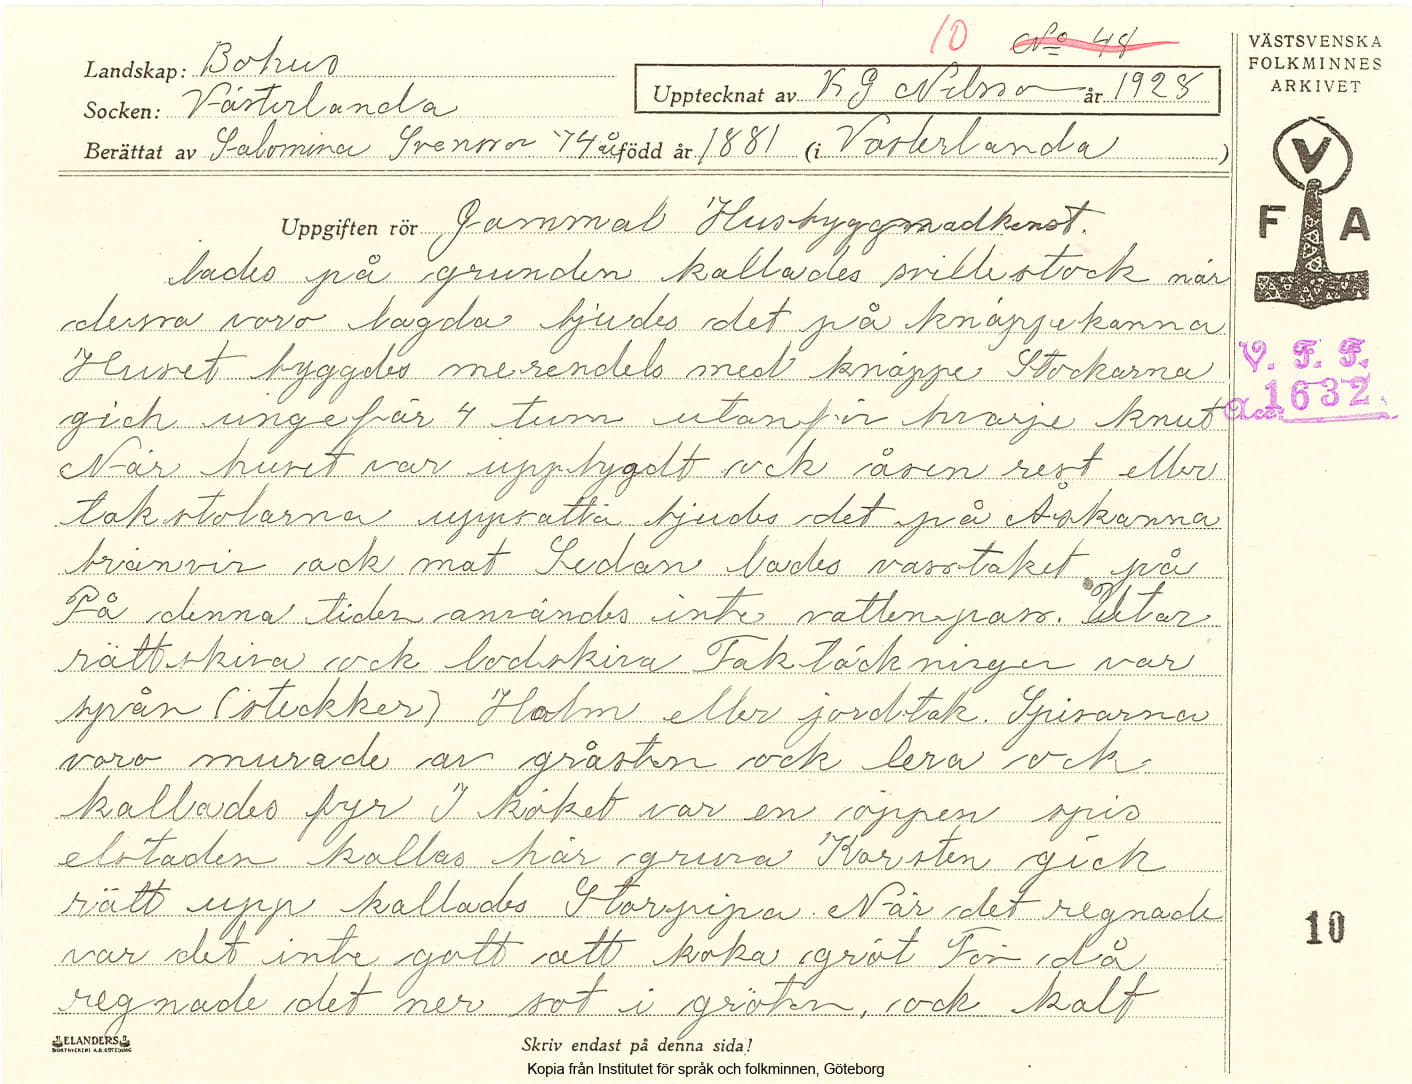 10 No 48
Landskap: Bohus
Socken: Västerlanda
Upptecknat av K G Nilsson år 1928
Berättat av Salomina Svenson 74 år född år 1881 (i Västerlanda)
Uppgiften rör Gammal Husbyggnadkonst.
lades på grunden kallades svillestock når
dessa voro lagda bjudes det på knäppekanna
Huset byggdes merendels med knäppe Stockarna
gick ungefär 4 tum utanför hvarje knut
När huset var uppbygdt ock åsen rest eller
takstolarna uppsatta bjudes det på Åskanna
bränvin ock mat Sedan lades vasstaket på
På denna tiden användes inte vattenpass. Utar
rättskiva ock lodskiva Taktäckningen var
spån (steckker) Halm eller jordtak. Spisarna
voro murade av gråsten ock lera ock
kallades fyr I köket var en öppen spis
elstaden kallas här gruva Korsten gick
rätt upp kallades Storpipa. När det regnade
var det inte gott att koka gröt För då
regnade det ner sot i gröten, ock kalf
Skriv endast på denna sida!
ELANDERS
BOKTRYCKERI A.B. GÖTEBORG
Kopia från Institutet för språk och folkminnen, Göteborg
VÄSTSVENSKA
FOLKMINNES
ARKIVET
V
F A
V. F. F.
Acc. 1632.
10